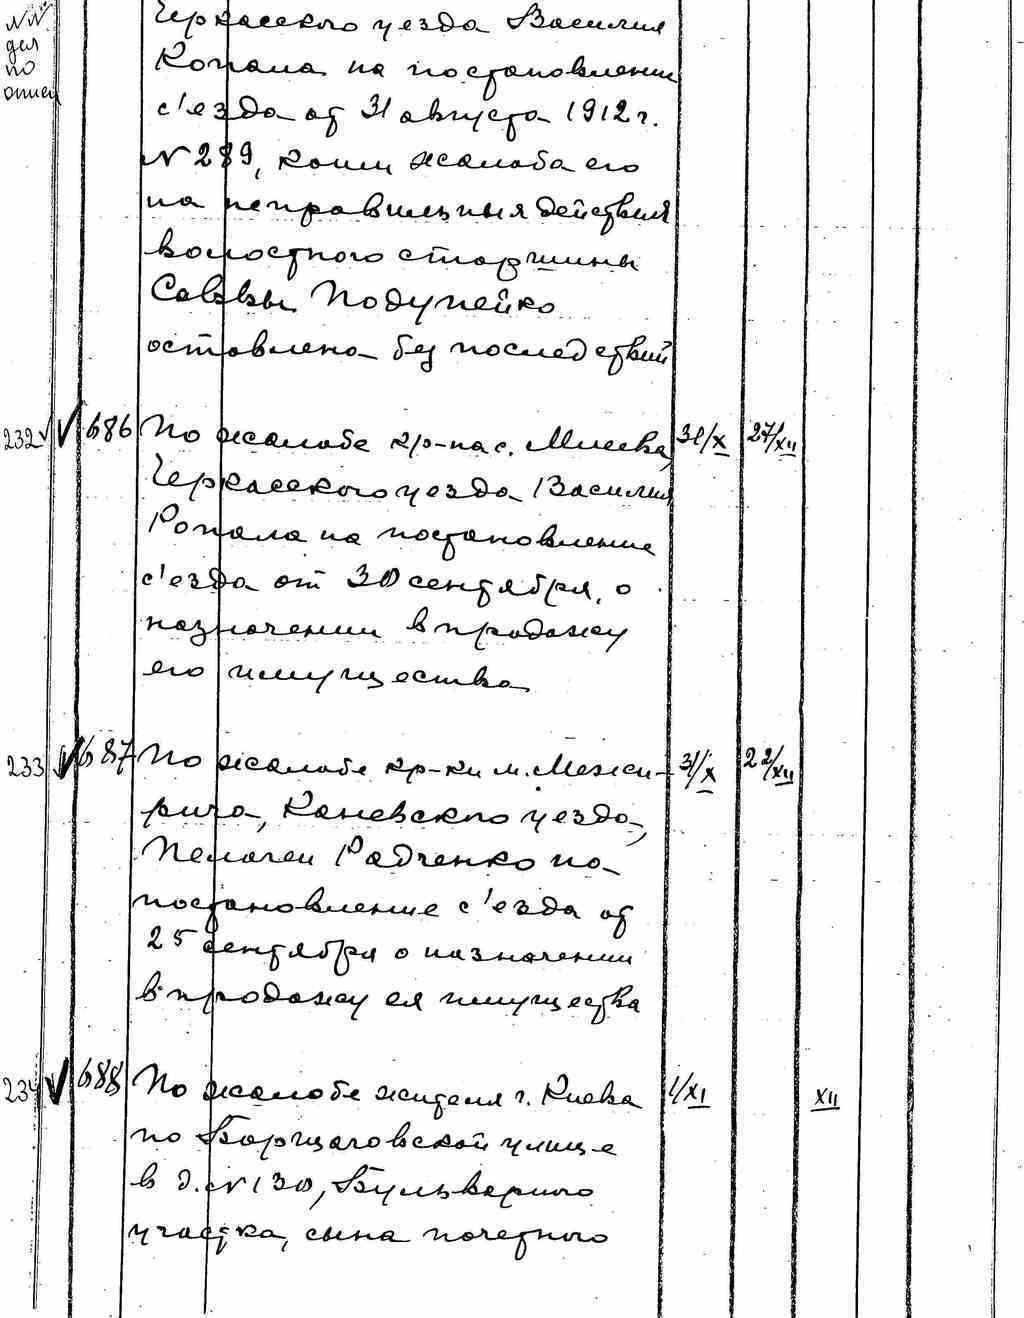 NN
дел
по
описи
Черкасского уезда Василия
Копала на постановление
с'езда от 31 августа 1912 г.
N 289, коим жалоба его
на неправильныя действия
волостного старшины
Саввы Подупейко
оставлена без последствий
232 686 По жалобе кр-на с. Млеева, 31/X 27/XII
Черкасского уезда Василия
Копала на постановление
с'езда от 30 сентября, о
назначении в продажу
его имущества
233 687 По жалобе кр-ки м. Межи- 31/X 22/XII
рича, Каневского уезда,
Пелагеи Радченко на
постановление с'езда от
25 сентября о назначении
в продажу ея имущества
234 688 По жалобе жителя г. Киева 1/XI XII
по Борщаговской улице
в д. N 130, Бульварного
участка, сына почетного